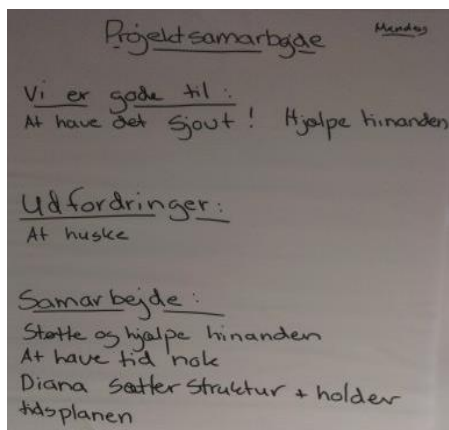 Projektsamarbejde
Mandag
Vi er gode til:
At have det sjovt! Hjælpe hinanden
Udfordringer:
At huske
Samarbejde:
Støtte og hjælpe hinanden
At have tid nok
Diana sætter struktur + holder
tidsplanen